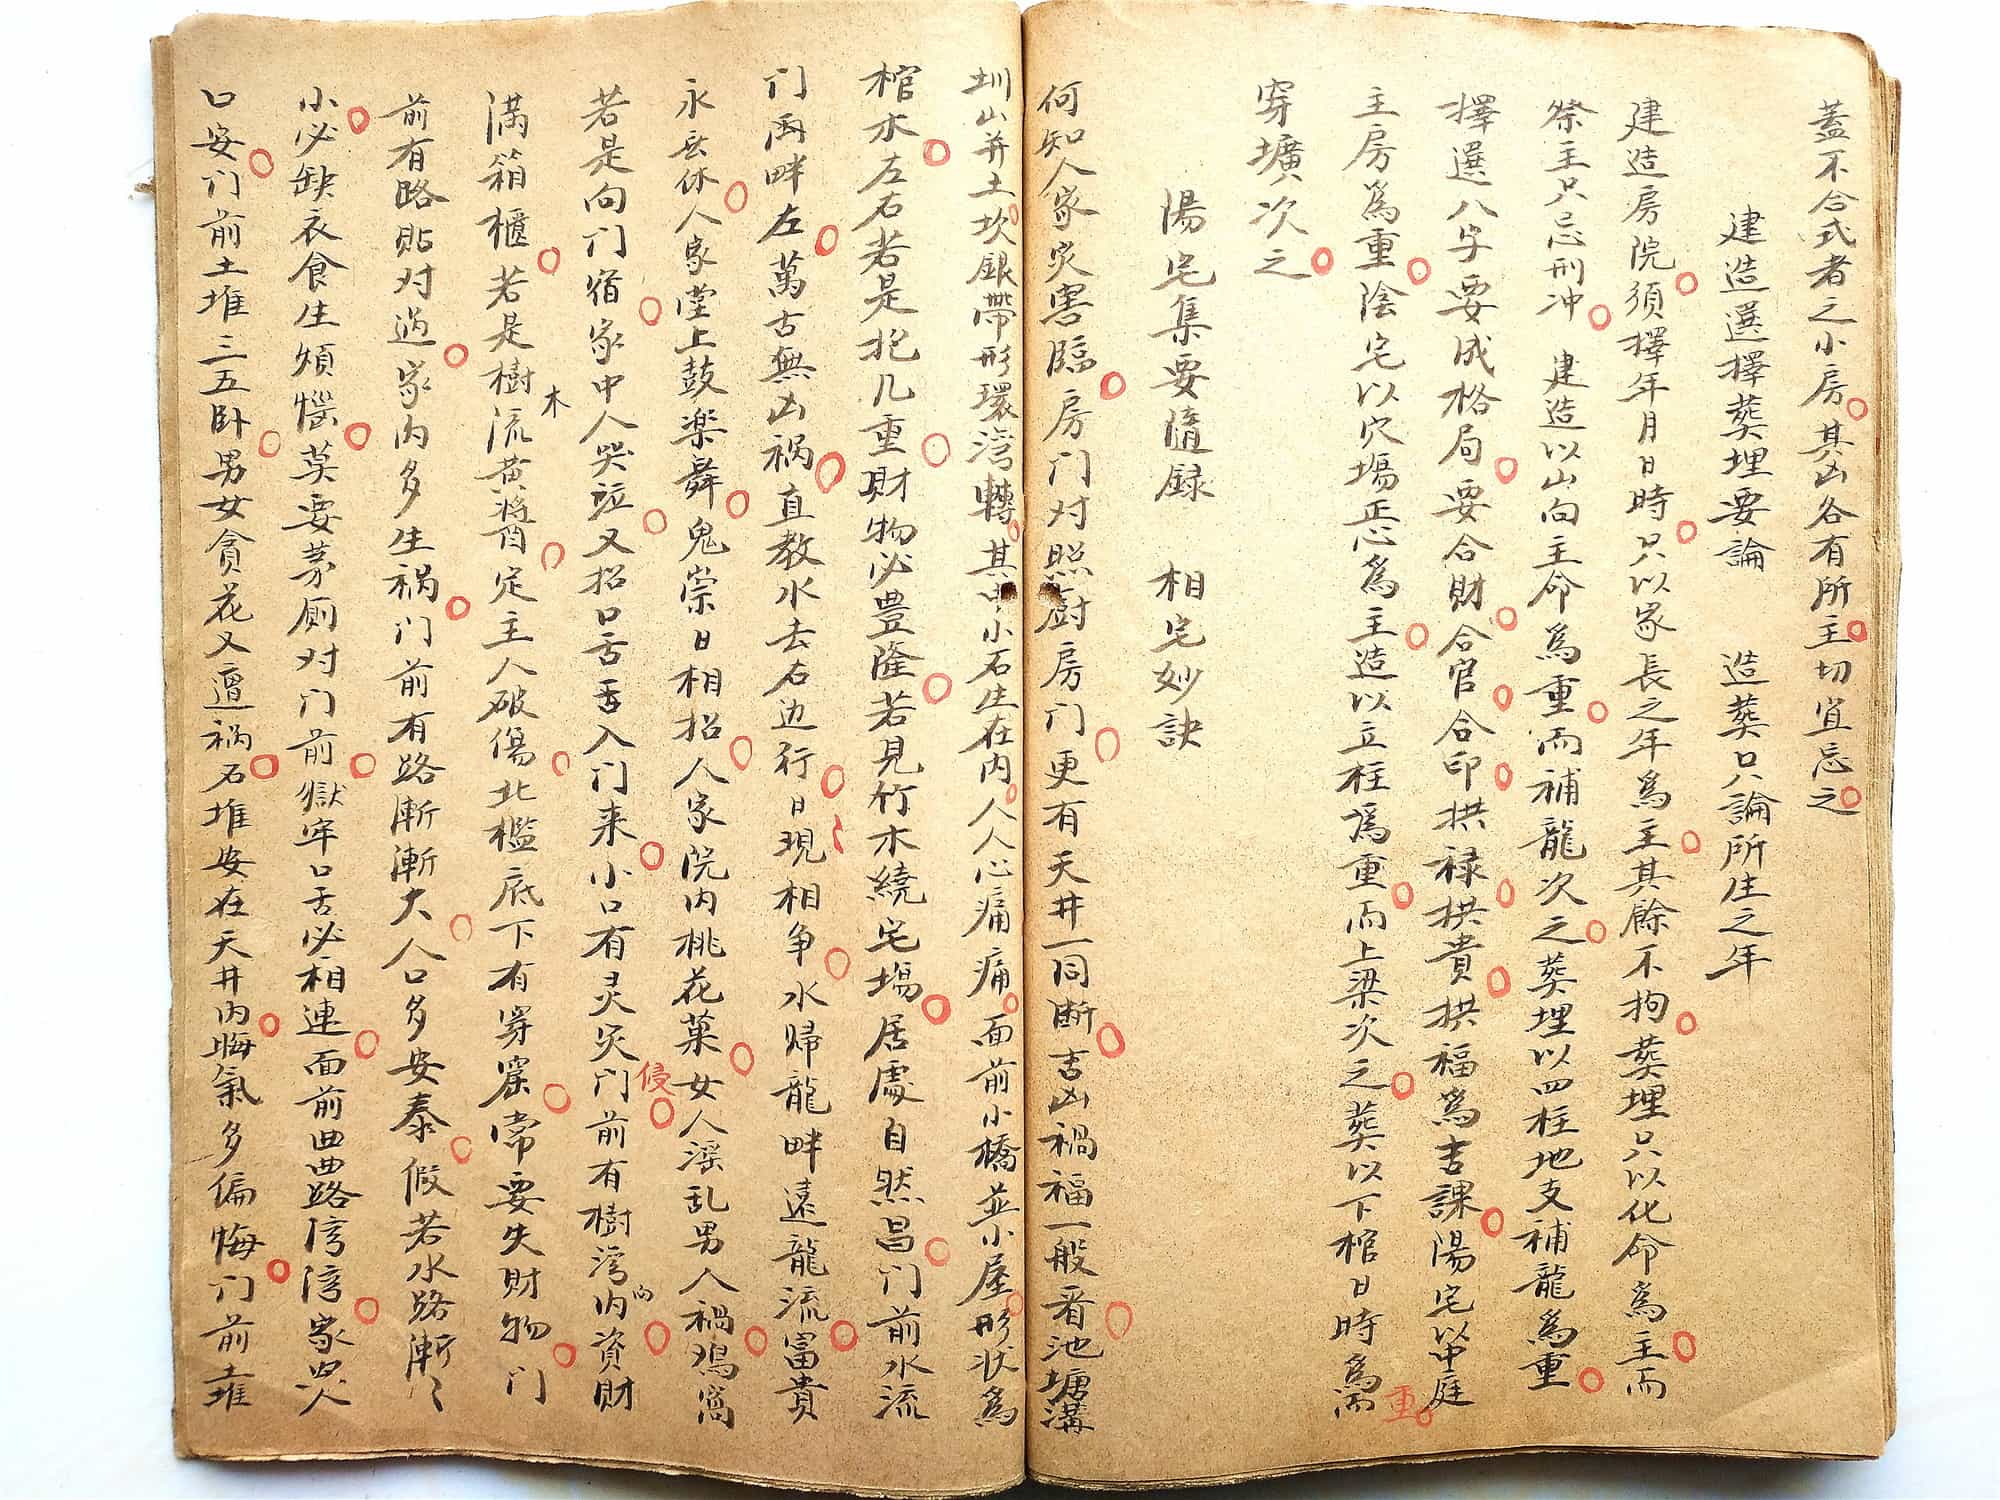 蓋不合式者之小房其凶各有所主切宜忌之
建造選擇葬埋要論　造葬只論所生之年
建造房院須擇年月日時只以家長之年爲主其餘不拘葬埋只以化命爲主而
祭主只忌刑冲　建造以山向主命爲重而補龍次之葬埋以四柱地支補龍爲重
擇選八字要成格局要合財合官合印拱禄拱貴拱福爲吉課陽宅以中庭
主房爲重陰宅以穴場正心爲主造以立柱爲重而上梁次之葬以下棺日時爲重而
穿壙次之
陽宅集要隨録　相宅妙訣
何知人家災害臨房门对照廚房门更有天井一同断吉凶禍福一般看池塘溝
圳山并土坎銀帶形環湾轉其中小石生在内人人心痛痛面前小橋並小屋形状爲
棺木左右若是抱几重財物必豊隆若見竹木繞宅場居處自然昌门前水流
门两畔左萬古無凶禍直教水去右边行日現相争水帰龍畔遠龍流富貴
永无休人家堂上鼓楽舞鬼祟日相招人家院内桃花菓女人滛乱男人禍鳮窩
若是向门宿家中人哭泣又招口舌入门来小口有灵灾门前有樹湾内資財侵
满箱櫃若是樹木流黄醬定主人破傷北檻底下有穿窟常要失財物门
前有路贴对过家内多生祸门前有路漸漸大人口多安泰假若水路漸々
小必缺衣食生煩惱莫要茅厕对门前獄牢口舌必相連面前曲曲路湾湾家哭
口安门前土堆三五卧男女貪花又遭祸石堆安在天井内晦氣多偏悔门前土堆